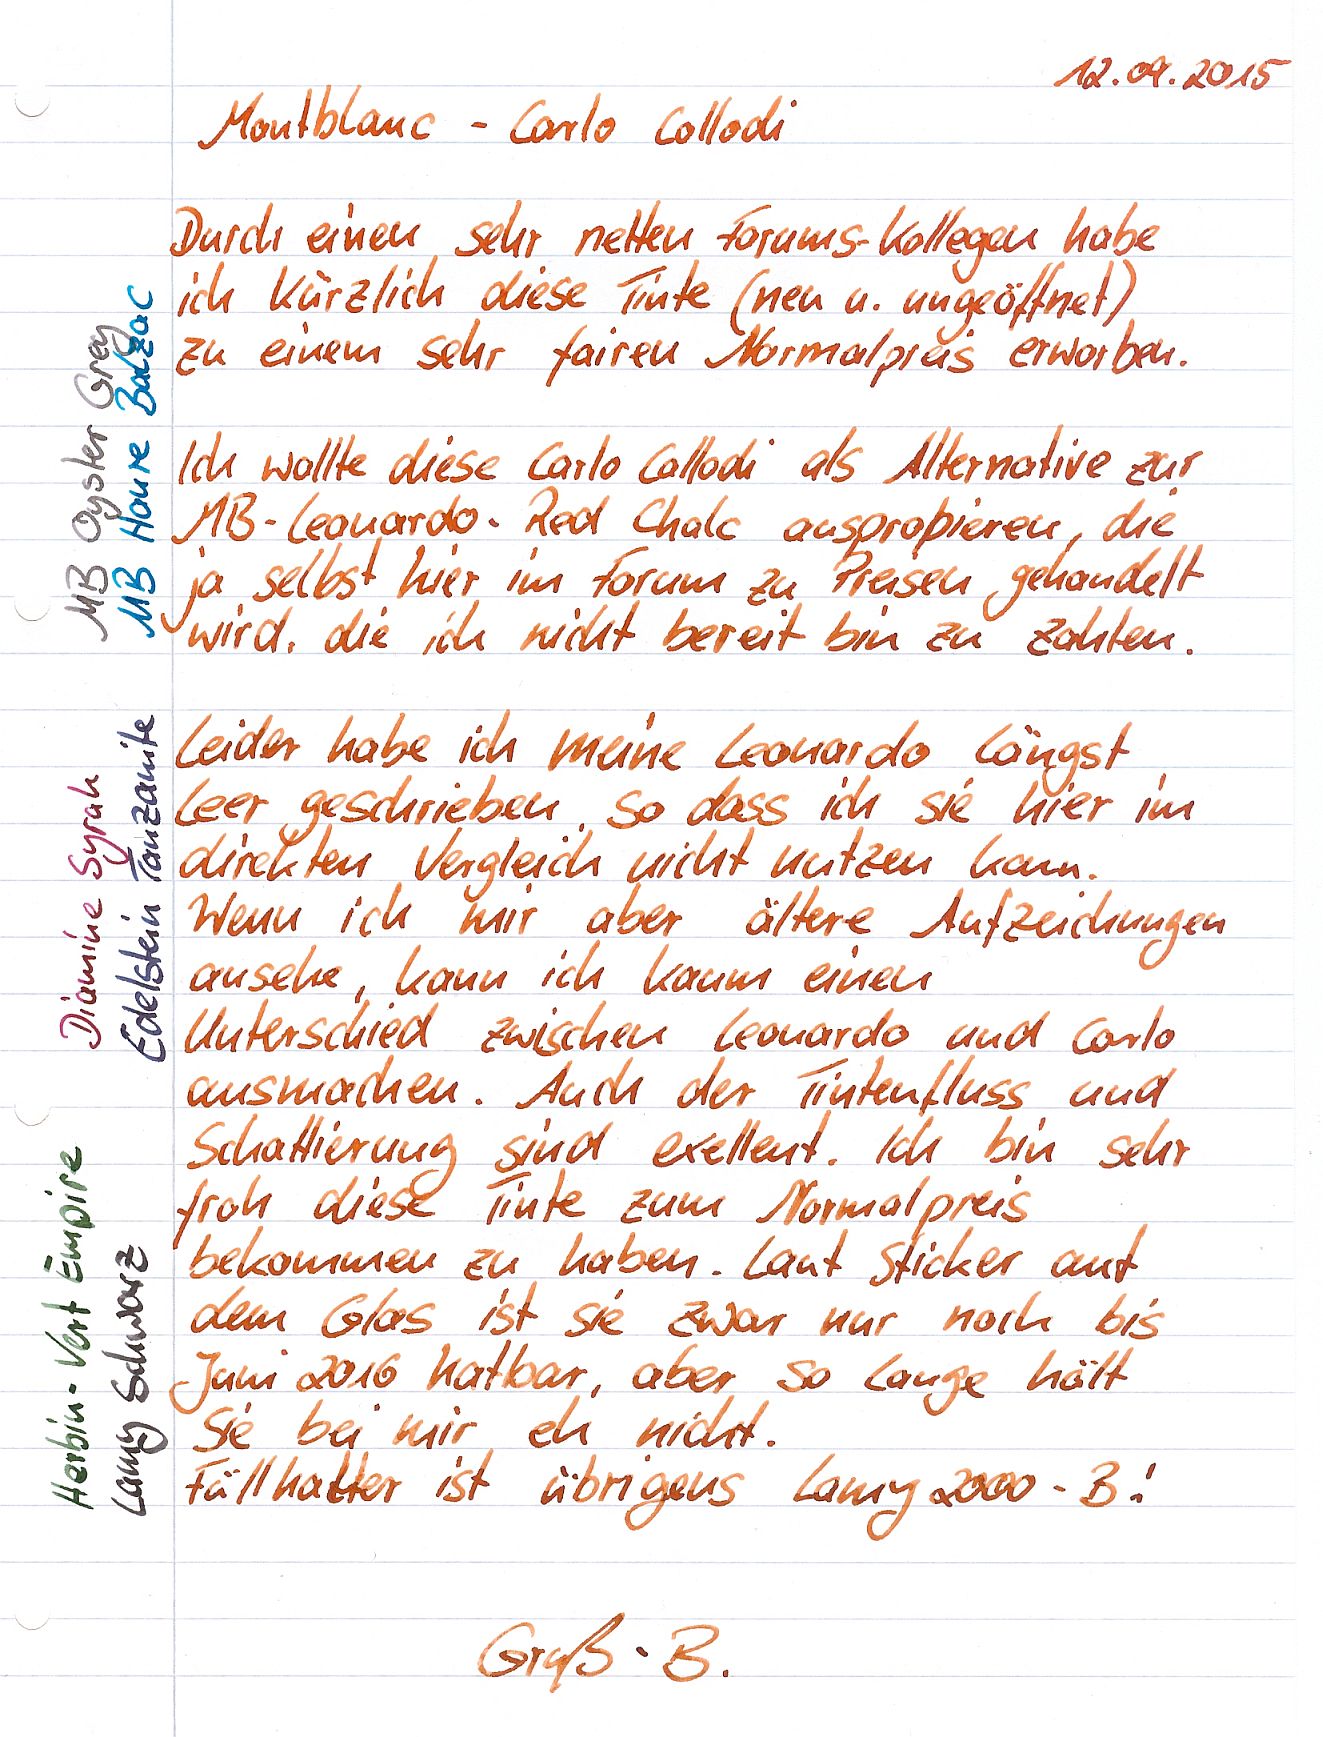 12.09.2015
Montblanc - Carlo Collodi
Durch einen sehr netten Forums-Kollegen habe
ich kürzlich diese Tinte (neu u. ungeöffnet)
zu einem sehr fairen Normalpreis erworben.
Ich wollte diese Carlo Collodi als Alternative zur
MB-Leonardo-Red Chalc ausprobieren, die
ja selbst hier im Forum zu Preisen gehandelt
wird, die ich nicht bereit bin zu zahlen.
Leider habe ich meine Leonardo längst
leer geschrieben, so dass ich sie hier im
direkten Vergleich nicht nutzen kann.
Wenn ich mir aber ältere Aufzeichungen
ansehe, kann ich kaum einen
Unterschied zwischen Leonardo und Carlo
ausmachen. Auch der Tintenfluss und
Schattierung sind exellent. Ich bin sehr
froh diese Tinte zum Normalpreis
bekommen zu haben. Laut Sticker auf
dem Glas ist sie zwar nur noch bis
Juni 2016 haltbar, aber so lange hält
Sie bei mir eh nicht.
Füllhalter ist übrigens Lamy 2000 - B!
Gruß - B.
MB Oyster Grey
MB Honore Balzac
Diamine Syrah
Edelstein Tanzanite
Herbin-Vert Empire
Lamy Schwarz